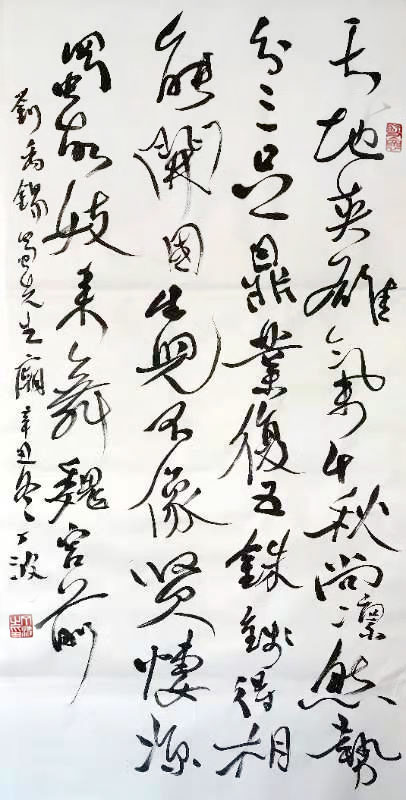 天地英雄氣千秋尚凛然勢
分三足鼎業復五銖錢得相
能開國生兒不像賢悽涼
蜀故妓来舞魏宫前
劉禹錫蜀先主廟辛丑冬丁波